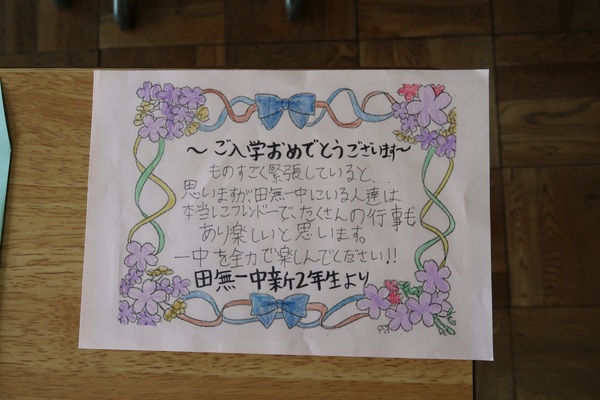 ～ご入学おめでとうございます～
ものすごく緊張していると、
思いますが田無一中にいる人達は
本当にフレンドーで、たくさんの行事も
あり楽しいと思います。
一中を全力で楽しんでください!!
田無一中新2年生より